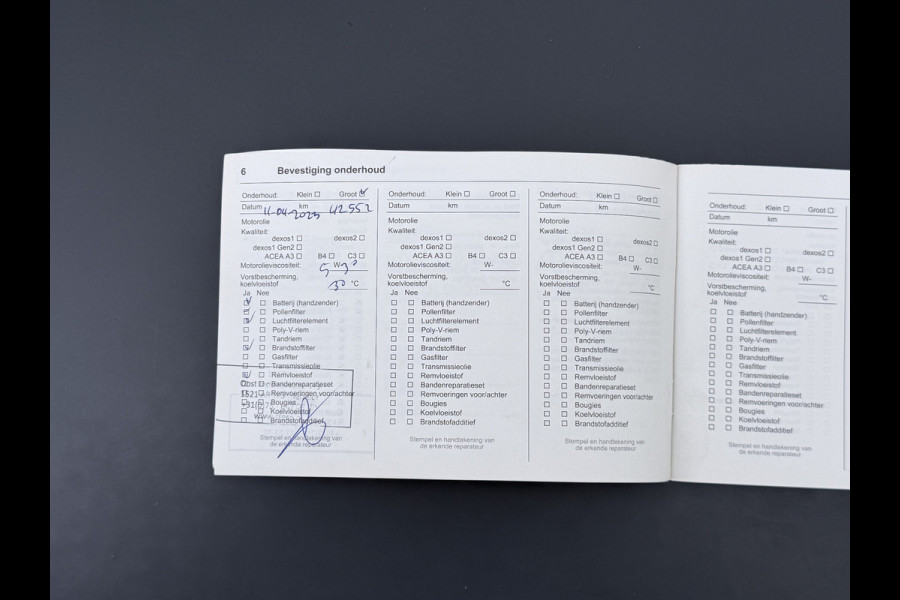 6 Bevestiging onderhoud
Onderhoud: Klein ☐ Groot ☑
Datum 11-04-2025 km 42552
Motorolie
Kwaliteit:
dexos1 ☐ dexos2 ☐
dexos1 Gen2 ☐
ACEA A3 ☐ B4 ☐ C3 ☐
Motorolieviscositeit: 5 W- 30
Vorstbescherming,
koelvloeistof 30 °C
Ja Nee
Batterij (handzender)
Pollenfilter
Luchtfilterelement
Poly-V-riem
Tandriem
Brandstoffilter
Gasfilter
Transmissieolie
Remvloeistof
Bandenreparatieset
Remvoeringen voor/achter
Bougies
Koelvloeistof
Brandstofadditief
Stempel en handtekening van
de erkende reparateur
Onderhoud: Klein ☐ Groot ☐
Datum km
Motorolie
Kwaliteit:
dexos1 ☐ dexos2 ☐
dexos1 Gen2 ☐
ACEA A3 ☐ B4 ☐ C3 ☐
Motorolieviscositeit: W-
Vorstbescherming,
koelvloeistof °C
Ja Nee
☐ ☐ Batterij (handzender)
☐ ☐ Pollenfilter
☐ ☐ Luchtfilterelement
☐ ☐ Poly-V-riem
☐ ☐ Tandriem
☐ ☐ Brandstoffilter
☐ ☐ Gasfilter
☐ ☐ Transmissieolie
☐ ☐ Remvloeistof
☐ ☐ Bandenreparatieset
☐ ☐ Remvoeringen voor/achter
☐ ☐ Bougies
☐ ☐ Koelvloeistof
☐ ☐ Brandstofadditief
Stempel en handtekening van
de erkende reparateur
Onderhoud: Klein ☐ Groot ☐
Datum km
Motorolie
Kwaliteit:
dexos1 ☐ dexos2 ☐
dexos1 Gen2 ☐
ACEA A3 ☐ B4 ☐ C3 ☐
Motorolieviscositeit: W-
Vorstbescherming,
koelvloeistof °C
Ja Nee
☐ ☐ Batterij (handzender)
☐ ☐ Pollenfilter
☐ ☐ Luchtfilterelement
☐ ☐ Poly-V-riem
☐ ☐ Tandriem
☐ ☐ Brandstoffilter
☐ ☐ Gasfilter
☐ ☐ Transmissieolie
☐ ☐ Remvloeistof
☐ ☐ Bandenreparatieset
☐ ☐ Remvoeringen voor/achter
☐ ☐ Bougies
☐ ☐ Koelvloeistof
☐ ☐ Brandstofadditief
Stempel en handtekening van
de erkende reparateur
Onderhoud: Klein ☐ Groot ☐
Datum km
Motorolie
Kwaliteit:
dexos1 ☐ dexos2 ☐
dexos1 Gen2 ☐
ACEA A3 ☐ B4 ☐ C3 ☐
Motorolieviscositeit: W-
Vorstbescherming,
koelvloeistof °C
Ja Nee
☐ ☐ Batterij (handzender)
☐ ☐ Pollenfilter
☐ ☐ Luchtfilterelement
☐ ☐ Poly-V-riem
☐ ☐ Tandriem
☐ ☐ Brandstoffilter
☐ ☐ Gasfilter
☐ ☐ Transmissieolie
☐ ☐ Remvloeistof
☐ ☐ Bandenreparatieset
☐ ☐ Remvoeringen voor/achter
☐ ☐ Bougies
☐ ☐ Koelvloeistof
☐ ☐ Brandstofadditief
Stempel en handtekening van
de erkende reparateur